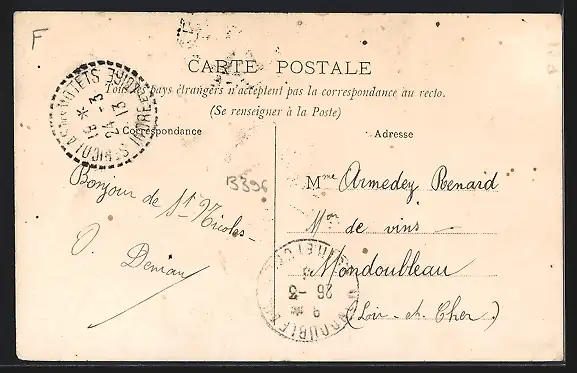 F
CARTE POSTALE
Tous les pays étrangers n'acceptent pas la correspondance au recto.
(Se renseigner à la Poste)
Correspondance
Adresse
16 *
24 -3
13
INDRE-ET-LOIRE
B396
Bonjour de St Nicolas -
O. Demay
Mme Armedey Renard
Mon de vins -
Mondoubleau
(Loir-et-Cher)
9 *
26 -3